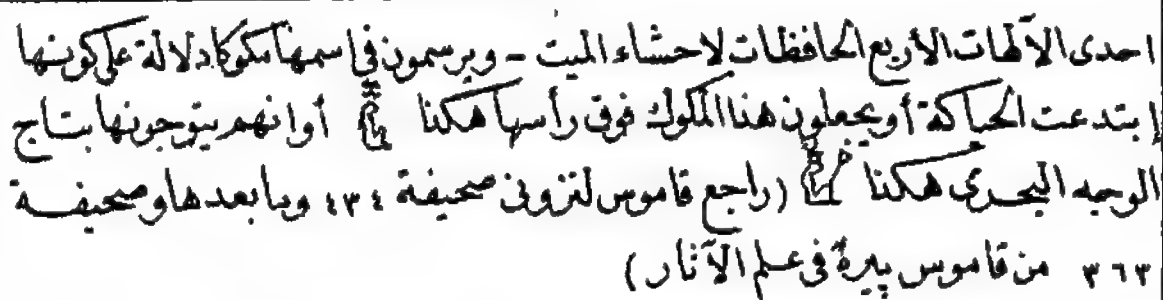 احدى الآلهات الأربع الحافظات لاحشاء الميت - ويرسمون في اسمها مكوكا دلالة على كونها
إبتدعت الحياكة أو يجعلون هذا المكوك فوق رأسها هكذا أو انهم يتوجونها بتاج
الوجه البحرى هكذا (راجع قاموس لنزونى صحيفة ٤٣٤ وما بعدها وصحيفة
٣٦٣ من قاموس بيرهٌ فى علم الآثار)